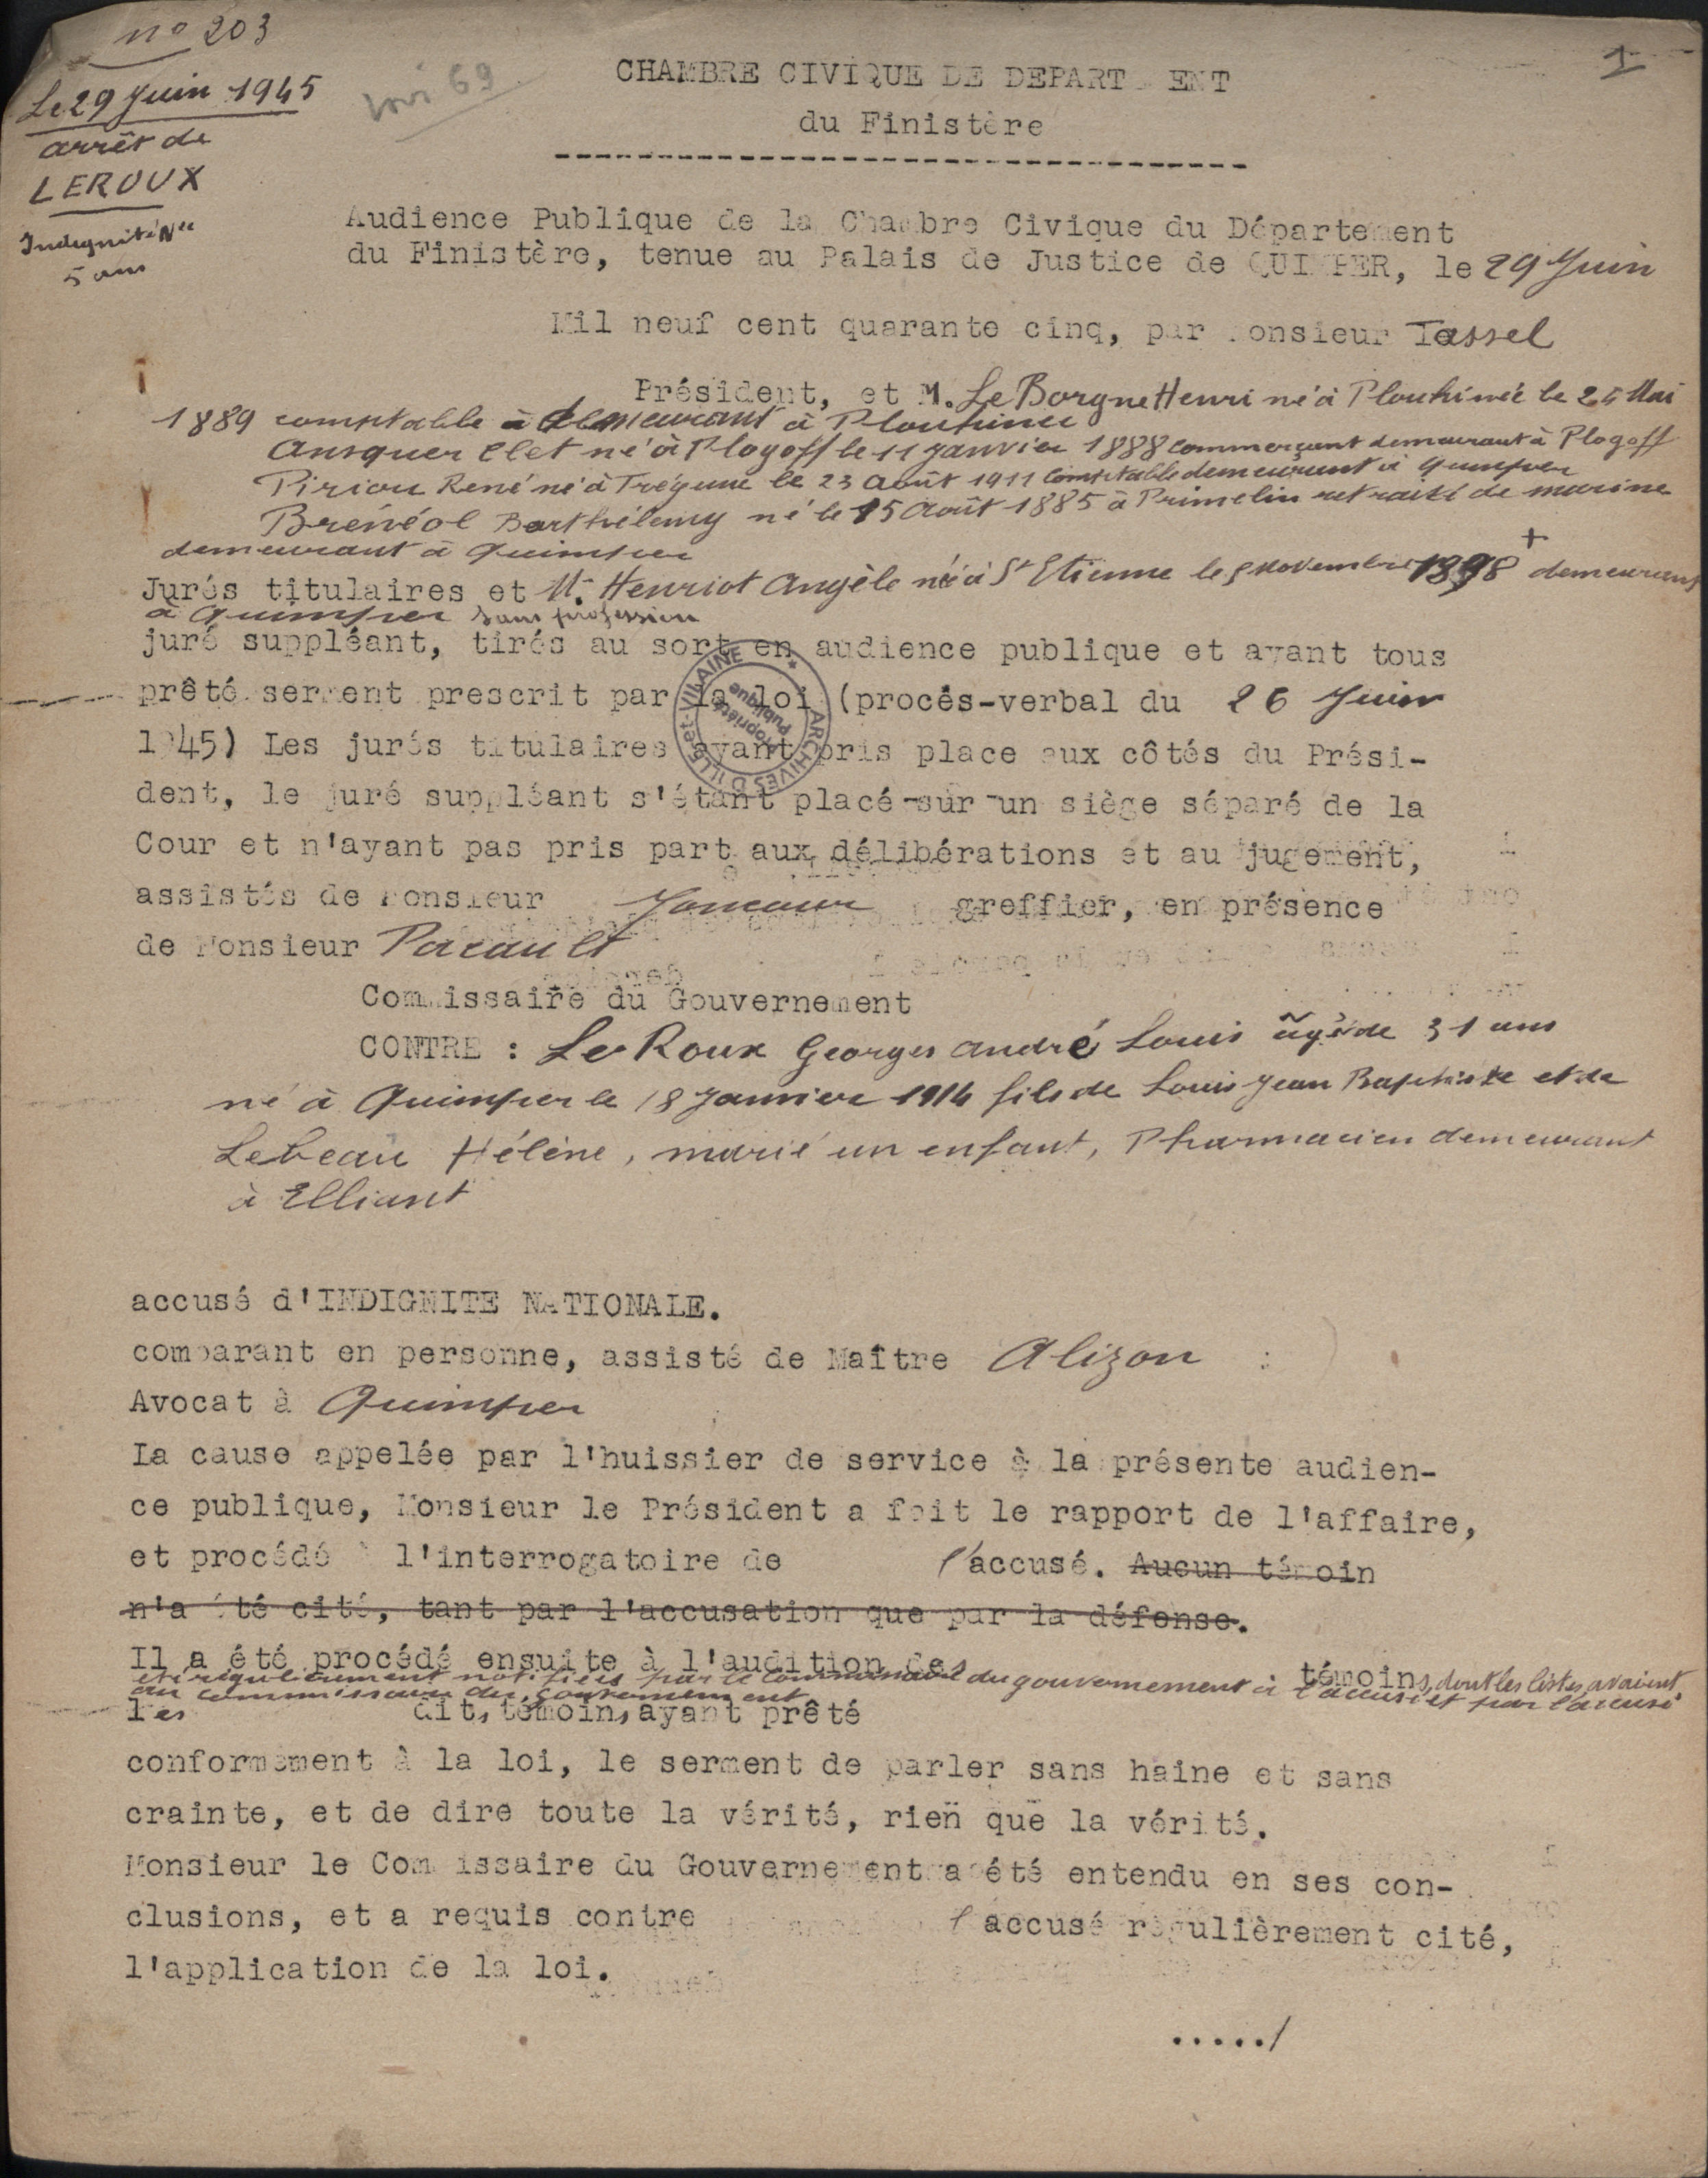 no 203
Le 29 Juin 1945
arrêt de
LEROUX
Indignité Nle
5 ans
69
1
CHAMBRE CIVIQUE DE DEPART ENT
du Finistère
Audience Publique de la Chambre Civique du Département
du Finistère, tenue au Palais de Justice de QUIMPER, le 29 Juin
Mil neuf cent quarante cinq, par Monsieur Tassel
Président, et M. Le Borgne Henri né à Plouhinec le 25 Mai
1889 comptable demeurant à Plouhinec
Ansquer Clet né à Plogoff le 11 Janvier 1888 commerçant demeurant à Plogoff
Piriou René né à Trégunc le 23 Août 1911 comptable demeurant à Quimper
Brénéol Barthélemy né le 15 Août 1885 à Primelin retraité de marine
demeurant à Quimper
Jurés titulaires et M. Henriot Angèle né à St Etienne le 5 Novembre 1898 + demeurant
à Quimper sans profession
juré suppléant, tirés au sort en audience publique et ayant tous
prêté serment prescrit par la loi (procès-verbal du 26 Juin
1945) Les jurés titulaires ayant pris place aux côtés du Prési-
dent, le juré suppléant s'étant placé sur un siège séparé de la
Cour et n'ayant pas pris part aux délibérations et au jugement,
assistés de Monsieur Joncour greffier, en présence
de Monsieur Pacault
Commissaire du Gouvernement
CONTRE : Le Roux Georges André Louis âgé de 31 ans
né à Quimper le 18 Janvier 1914 fils de Louis Jean Baptiste et de
Lebeau Hélène, marié un enfant, Pharmacien demeurant
à Elliant
ARCHIVES D'ILLE-et-VILAINE
Propriété Publique
accusé d'INDIGNITE NATIONALE.
comparant en personne, assisté de Maître Alizon :
Avocat à Quimper
La cause appelée par l'huissier de service à la présente audien-
ce publique, Monsieur le Président a fait le rapport de l'affaire,
et procédé à l'interrogatoire de l'accusé. Aucun témoin
n'a été cité, tant par l'accusation que par la défense.
Il a été procédé ensuite à l'audition des témoins, dont les listes avaient
été régulièrement notifiées par le Commissaire du gouvernement à l'accusé et par l'accusé
au commissaire du gouvernement
les dit, témoin, ayant prêté
conformément à la loi, le serment de parler sans haine et sans
crainte, et de dire toute la vérité, rien que la vérité.
Monsieur le Commissaire du Gouvernement a été entendu en ses con-
clusions, et a requis contre l'accusé régulièrement cité,
l'application de la loi.
...../